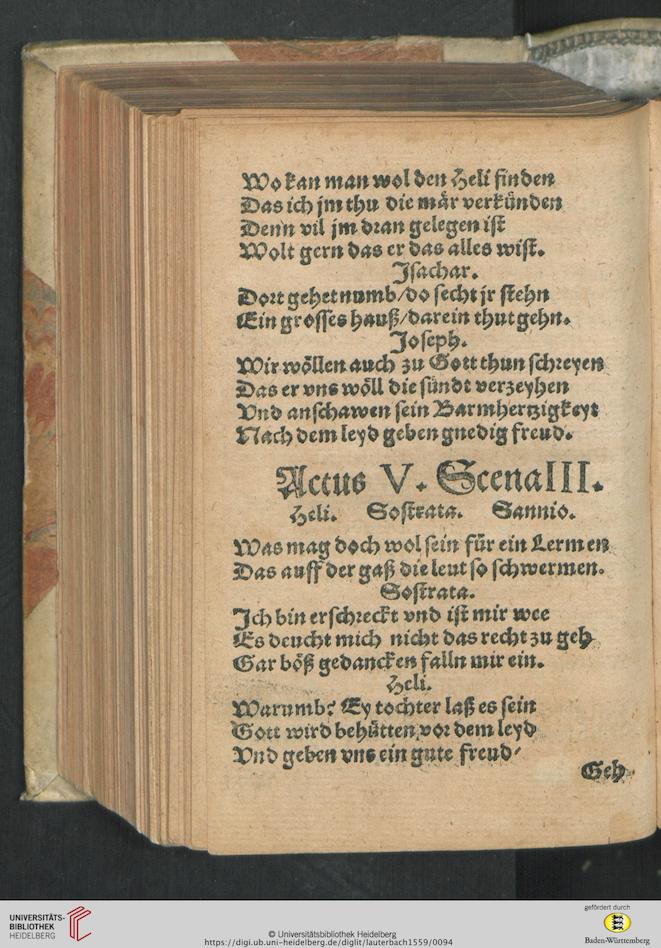 Wo kan man wol den Heli finden
Das ich jm thu die mär verkünden
Denn vil jm dran gelegen ist
Wolt gern das er das alles wist.
Isachar.
Dort gehet numb/do secht jr stehn
Ein grosses hauß/darein thut gehn.
Joseph.
Wir wöllen auch zu Gott thun schreyen
Das er vns wöll die sündt verzeyhen
Vnd anschawen sein Barmhertzigkeyt
Nach dem leyd geben gnedig freud.
Actus V. Scena III.
Heli. Sostrata. Sannio.
Was mag doch wol sein für ein Lermen
Das auff der gaß die leut so schwermen.
Sostrata.
Ich bin erschreckt vnd ist mir wee
Es deucht mich nicht das recht zu geh
Gar böß gedancken falln mir ein.
Heli.
Warumb? Ey tochter laß es sein
Gott wird behütten vor dem leyd
Vnd geben vns ein gute freud/
Geh
UNIVERSITÄTS-
BIBLIOTHEK
HEIDELBERG
© Universitätsbibliothek Heidelberg
https://digi.ub.uni-heidelberg.de/diglit/lauterbach1559/0094
gefördert durch
Baden-Württemberg